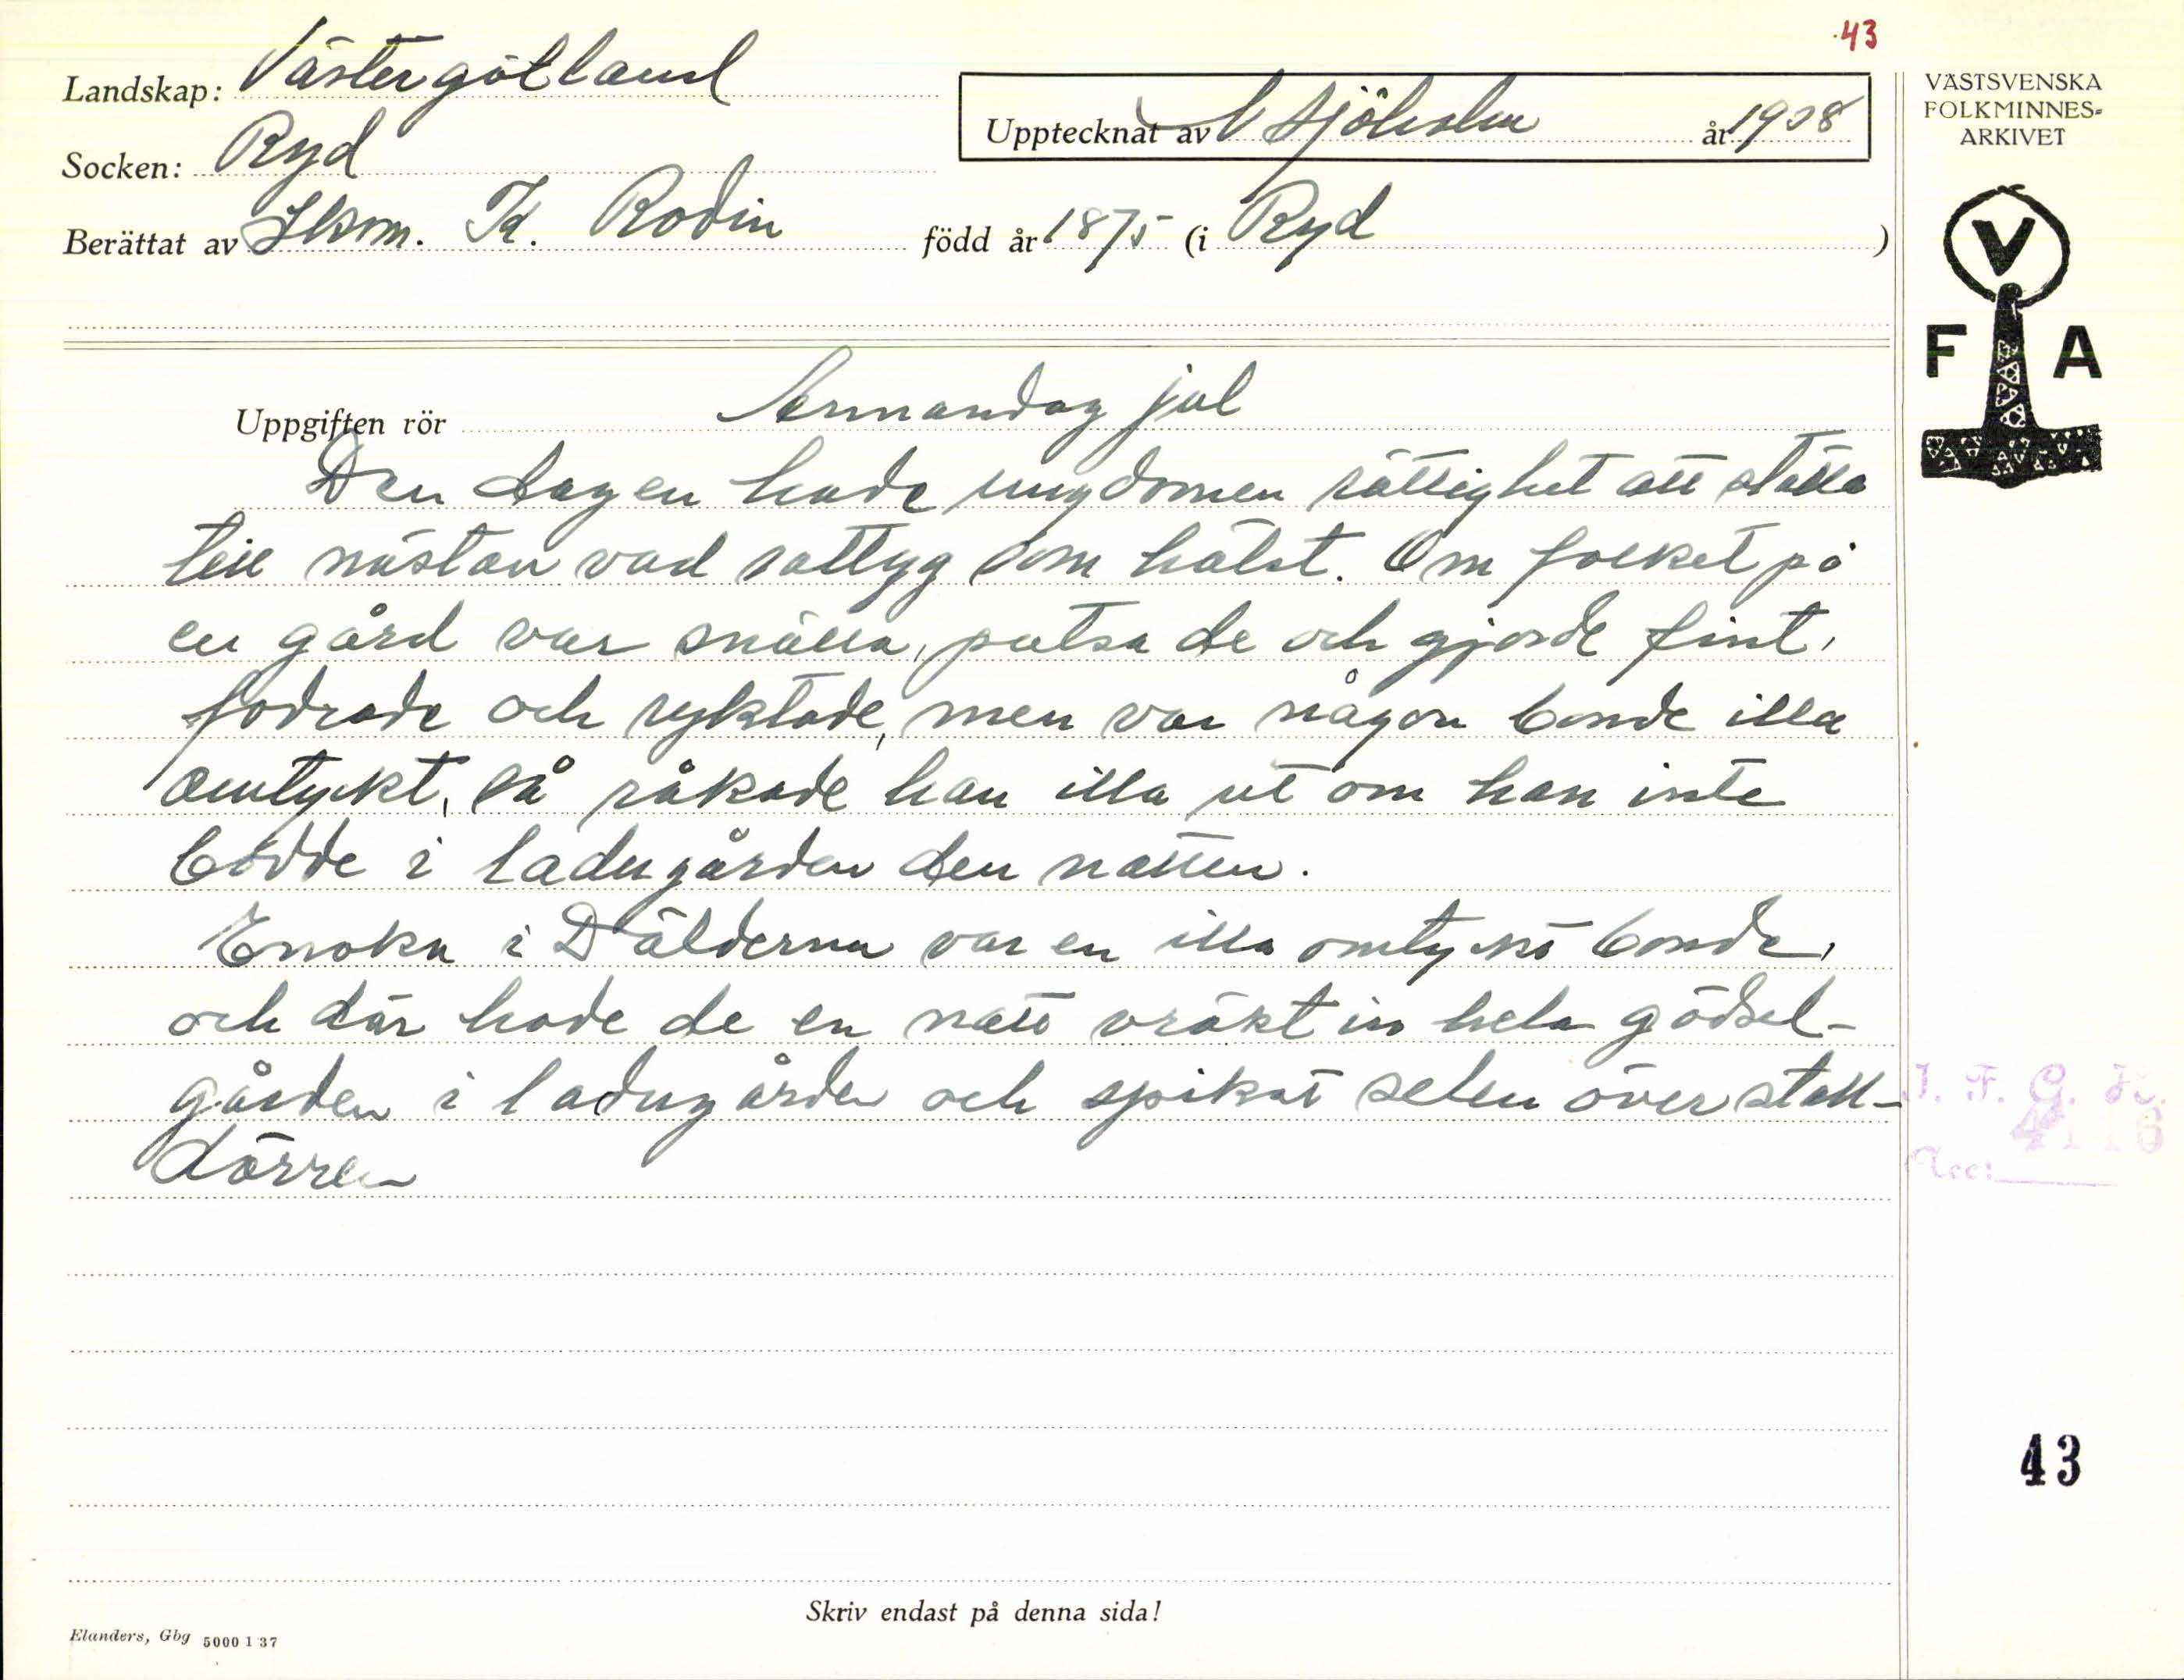 43
Landskap: Västergötland
Upptecknat av V Sjöholm år 1938
VÄSTSVENSKA
FOLKMINNES=
ARKIVET
Socken: Ryd
Berättat av Hsm. K. Rodin född år 1875 (i Ryd )
V
F A
Uppgiften rör Annandag jul
Den dagen hade ungdomen rättighet att ställa
till nästan vad rattyg som hälst. Om folket på
en gård var snälla, putsa de och gjorde fint,
fodrade och ryktade, men var någon bonde illa
omtyckt, så råkade han illa ut om han inte
bodde i ladugården den natten.
Enoka i Dälderna var en illa omtyckt bonde,
och där hade de en natt vräkt in hela gödsel-
gården i ladugården och spikat selen över stall-
dörren
I. F. G. H.
4116
Acc:
43
Skriv endast på denna sida!
Elanders, Gbg 5000 1 37